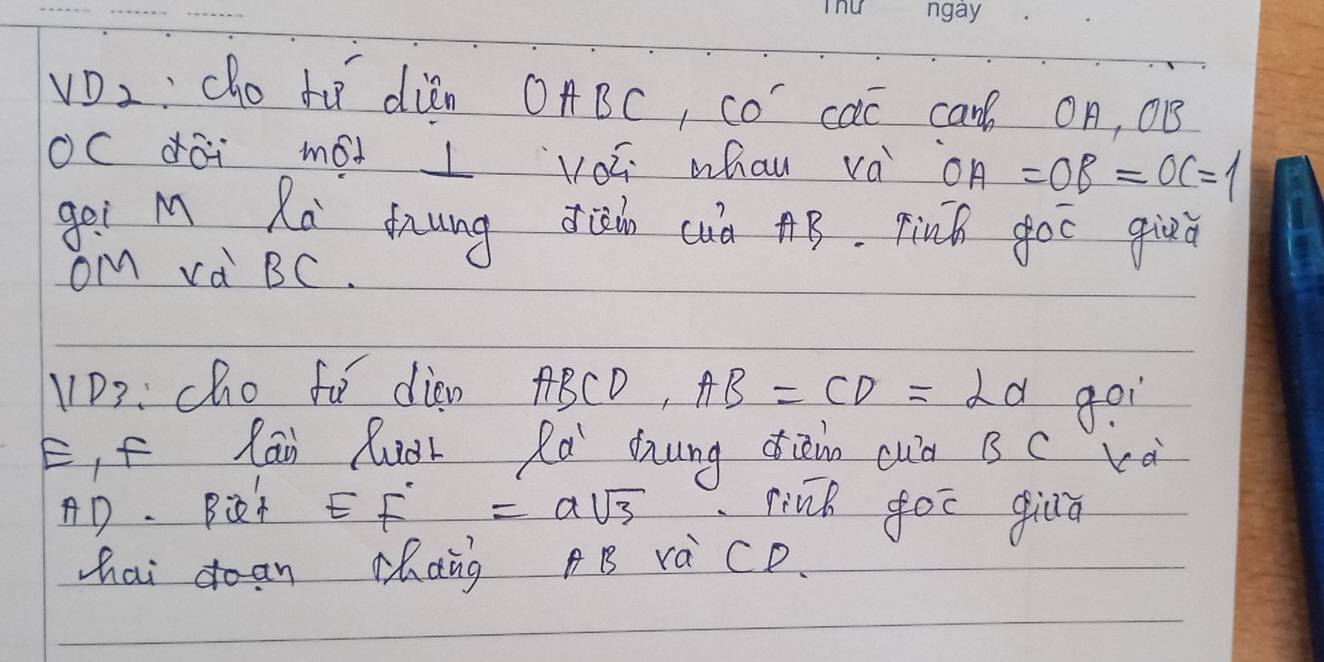 Thứ ngày
VD2: Cho tứ diện OABC, có các cạnh OA, OB
OC đôi một ⊥ với nhau và OA = OB = OC = 1
gọi M là trung điểm của AB. Tính góc giữa
OM và BC.
VD3: Cho tứ diện ABCD, AB = CD = 2a gọi
E, F lần lượt là trung điểm của BC và
AD. Biết EF = a√3. Tính góc giữa
hai đoạn thẳng AB và CD.